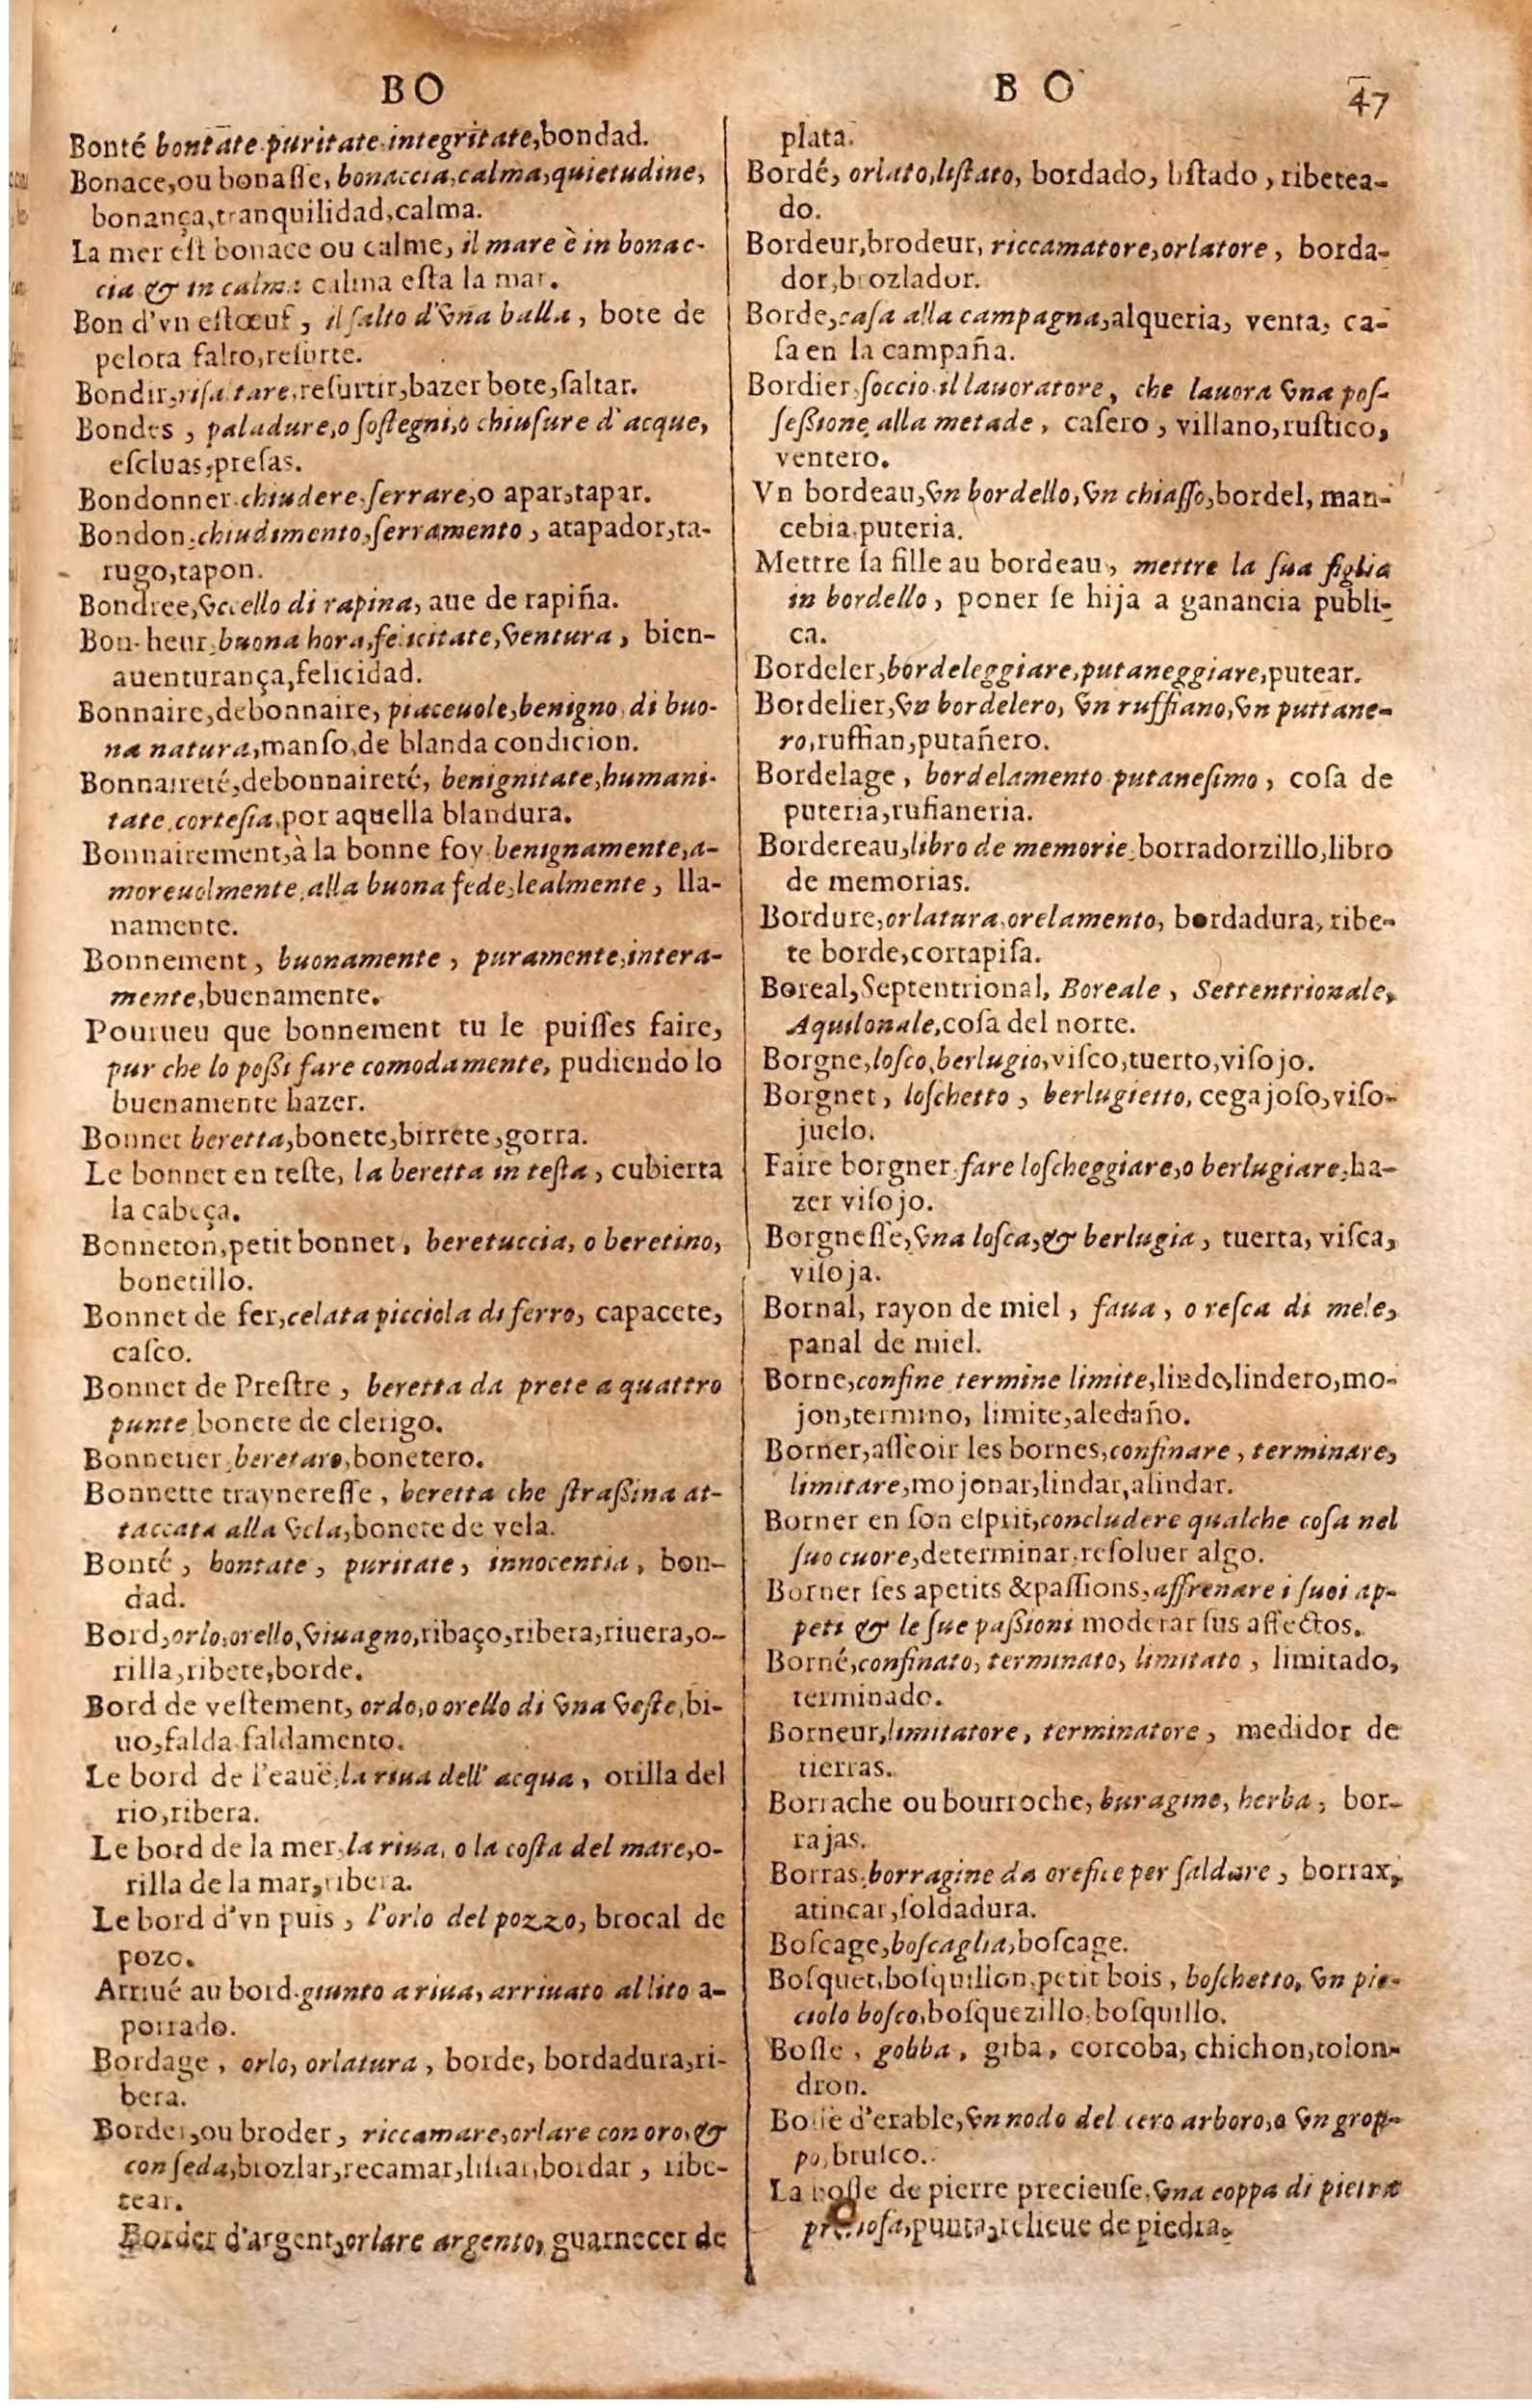 BO
Bonté bontate puritate integritate, bondad.
Bonace, ou bonaſſe, bonaccia, calma, quietudine,
bonança, tranquilidad, calma.
La mer eſt bonace ou calme, il mare è in bonac-
cia & in calma calma eſta la mar.
Bon d'vn eſtœuf, il ſalto d'vna balla, bote de
pelota ſalto, reſurte.
Bondir, riſaltare, reſurtir, bazer bote, ſaltar.
Bondes, paladure, o ſoſtegni, o chiuſure d'acque,
eſcluas, preſas.
Bondonner chiudere ſerrare, o apar, tapar.
Bondon, chiudimento, ſerramento, atapador, ta-
rugo, tapon.
Bondree, vccello di rapina, aue de rapiña.
Bon-heur, buona hora, felicitate, ventura, bien-
auenturança, felicidad.
Bonnaire, debonnaire, piaceuole, benigno, di buo-
na natura, manſo, de blanda condicion.
Bonnaireté, debonnaireté, benignitate, humani-
tate, corteſia, por aquella blandura.
Bonnairement, à la bonne foy benignamente, a-
moreuolmente, alla buona fede, lealmente, lla-
namente.
Bonnement, buonamente, puramente, intera-
mente, buenamente.
Pourueu que bonnement tu le puiſſes faire,
pur che lo poßi fare comodamente, pudiendo lo
buenamente hazer.
Bonnet beretta, bonete, birrete, gorra.
Le bonnet en teſte, la beretta in teſta, cubierta
la cabeça.
Bonneton, petit bonnet, beretuccia, o beretino,
bonetillo.
Bonnet de fer, celata picciola di ferro, capacete,
caſco.
Bonnet de Preſtre, beretta da prete a quattro
punte, bonete de clerigo.
Bonnetier, beretaro, bonetero.
Bonnette traynereſſe, beretta che ſtraßina at-
taccata alla vela, bonete de vela.
Bonté, bontate, puritate, innocentia, bon-
dad.
Bord, orlo, orello, viuagno, ribaço, ribera, riuera, o-
rilla, ribete, borde.
Bord de veſtement, ordo, o orello di vna veſte, bi-
uo, falda faldamento.
Le bord de l'eauë, la riua dell'acqua, orilla del
rio, ribera.
Le bord de la mer, la riua, o la coſta del mare, o-
rilla de la mar, ribera.
Le bord d'vn puis, l'orlo del pozzo, brocal de
pozo.
Arriué au bord, giunto a riua, arriuato al lito a-
portado.
Bordage, orlo, orlatura, borde, bordadura, ri-
bera.
Border, ou broder, riccamare, orlare con oro, &
con ſeda, brozlar, recamar, liſtar, bordar, ribe-
tear.
Border d'argent, orlare argento, guarnecer de
B O
47
plata.
Bordé, orlato, liſtato, bordado, liſtado, ribetea-
do.
Bordeur, brodeur, riccamatore, orlatore, borda-
dor, brozlador.
Borde, caſa alla campagna, alqueria, venta, ca-
ſa en la campaña.
Bordier, ſoccio il lauoratore, che lauora vna poſ-
ſeßione alla metade, caſero, villano, ruſtico,
ventero.
Vn bordeau, vn bordello, vn chiaſſo, bordel, man-
cebia, puteria.
Mettre ſa fille au bordeau, mettre la ſua figlia
in bordello, poner ſe hija a ganancia publi-
ca.
Bordeler, bordeleggiare, putaneggiare, putear.
Bordelier, vn bordelero, vn ruffiano, vn puttane-
ro, ruffian, putañero.
Bordelage, bordelamento putaneſimo, coſa de
puteria, rufianeria.
Bordereau, libro de memorie, borradorzillo, libro
de memorias.
Bordure, orlatura, orelamento, bordadura, ribe-
te borde, cortapiſa.
Boreal, Septentrional, Boreale, Settentrionale,
Aquilonale, coſa del norte.
Borgne, loſco, berlugio, viſco, tuerto, viſojo.
Borgnet, loſchetto, berlugietto, cegajoſo, viſo-
juelo.
Faire borgner, fare loſcheggiare, o berlugiare, ha-
zer viſojo.
Borgneſſe, vna loſca, & berlugia, tuerta, viſca,
viſoja.
Bornal, rayon de miel, faua, o reſca di mele,
panal de miel.
Borne, confine termine limite, linde, lindero, mo-
jon, termino, limite, aledaño.
Borner, aſſeoir les bornes, confinare, terminare,
limitare, mojonar, lindar, alindar.
Borner en ſon eſprit, concludere qualche coſa nel
ſuo cuore, determinar, reſoluer algo.
Borner ſes apetits & paſſions, affrenare i ſuoi ap-
peti & le ſue paßioni moderar ſus affectos.
Borné, confinato, terminato, limitato, limitado,
terminado.
Borneur, limitatore, terminatore, medidor de
tierras.
Borrache ou bourroche, buragine, herba, bor-
rajas.
Borras, borragine da orefice per ſaldare, borrax,
atincar, ſoldadura.
Boſcage, boſcaglia, boſcage.
Boſquet, boſquillon, petit bois, boſchetto, vn pic-
ciolo boſco, boſquezillo, boſquillo.
Boſſe, gobba, giba, corcoba, chichon, tolon-
dron.
Boſſe d'erable, vn nodo del cero arboro, o vn grop-
po, bruſco.
La boſſe de pierre precieuſe, vna coppa di pietra
pretioſa, punta, relieue de piedra.